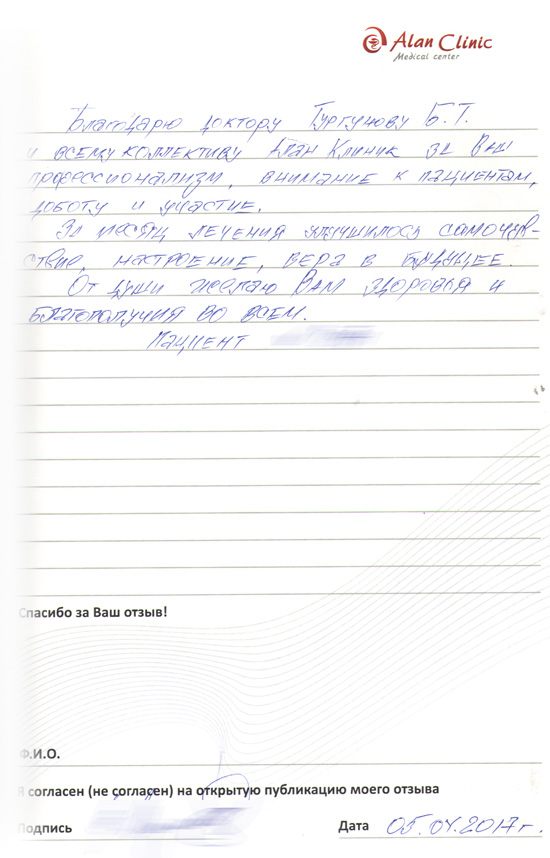 Alan Clinic
Medical center
Благодарю доктору Тургунову Б.Т.
и всему коллективу Алан Клиник за Ваш
профессионализм, внимание к пациентам,
доботу и участие.
За месяц лечения улучшилось самочув-
ствие, настроение, вера в будущее.
От души желаю Вам здоровья и
благополучия во всем.
Пациент
Спасибо за Ваш отзыв!
Ф.И.О.
Я согласен (не согласен) на открытую публикацию моего отзыва
Подпись
Дата 05.04.2017г.